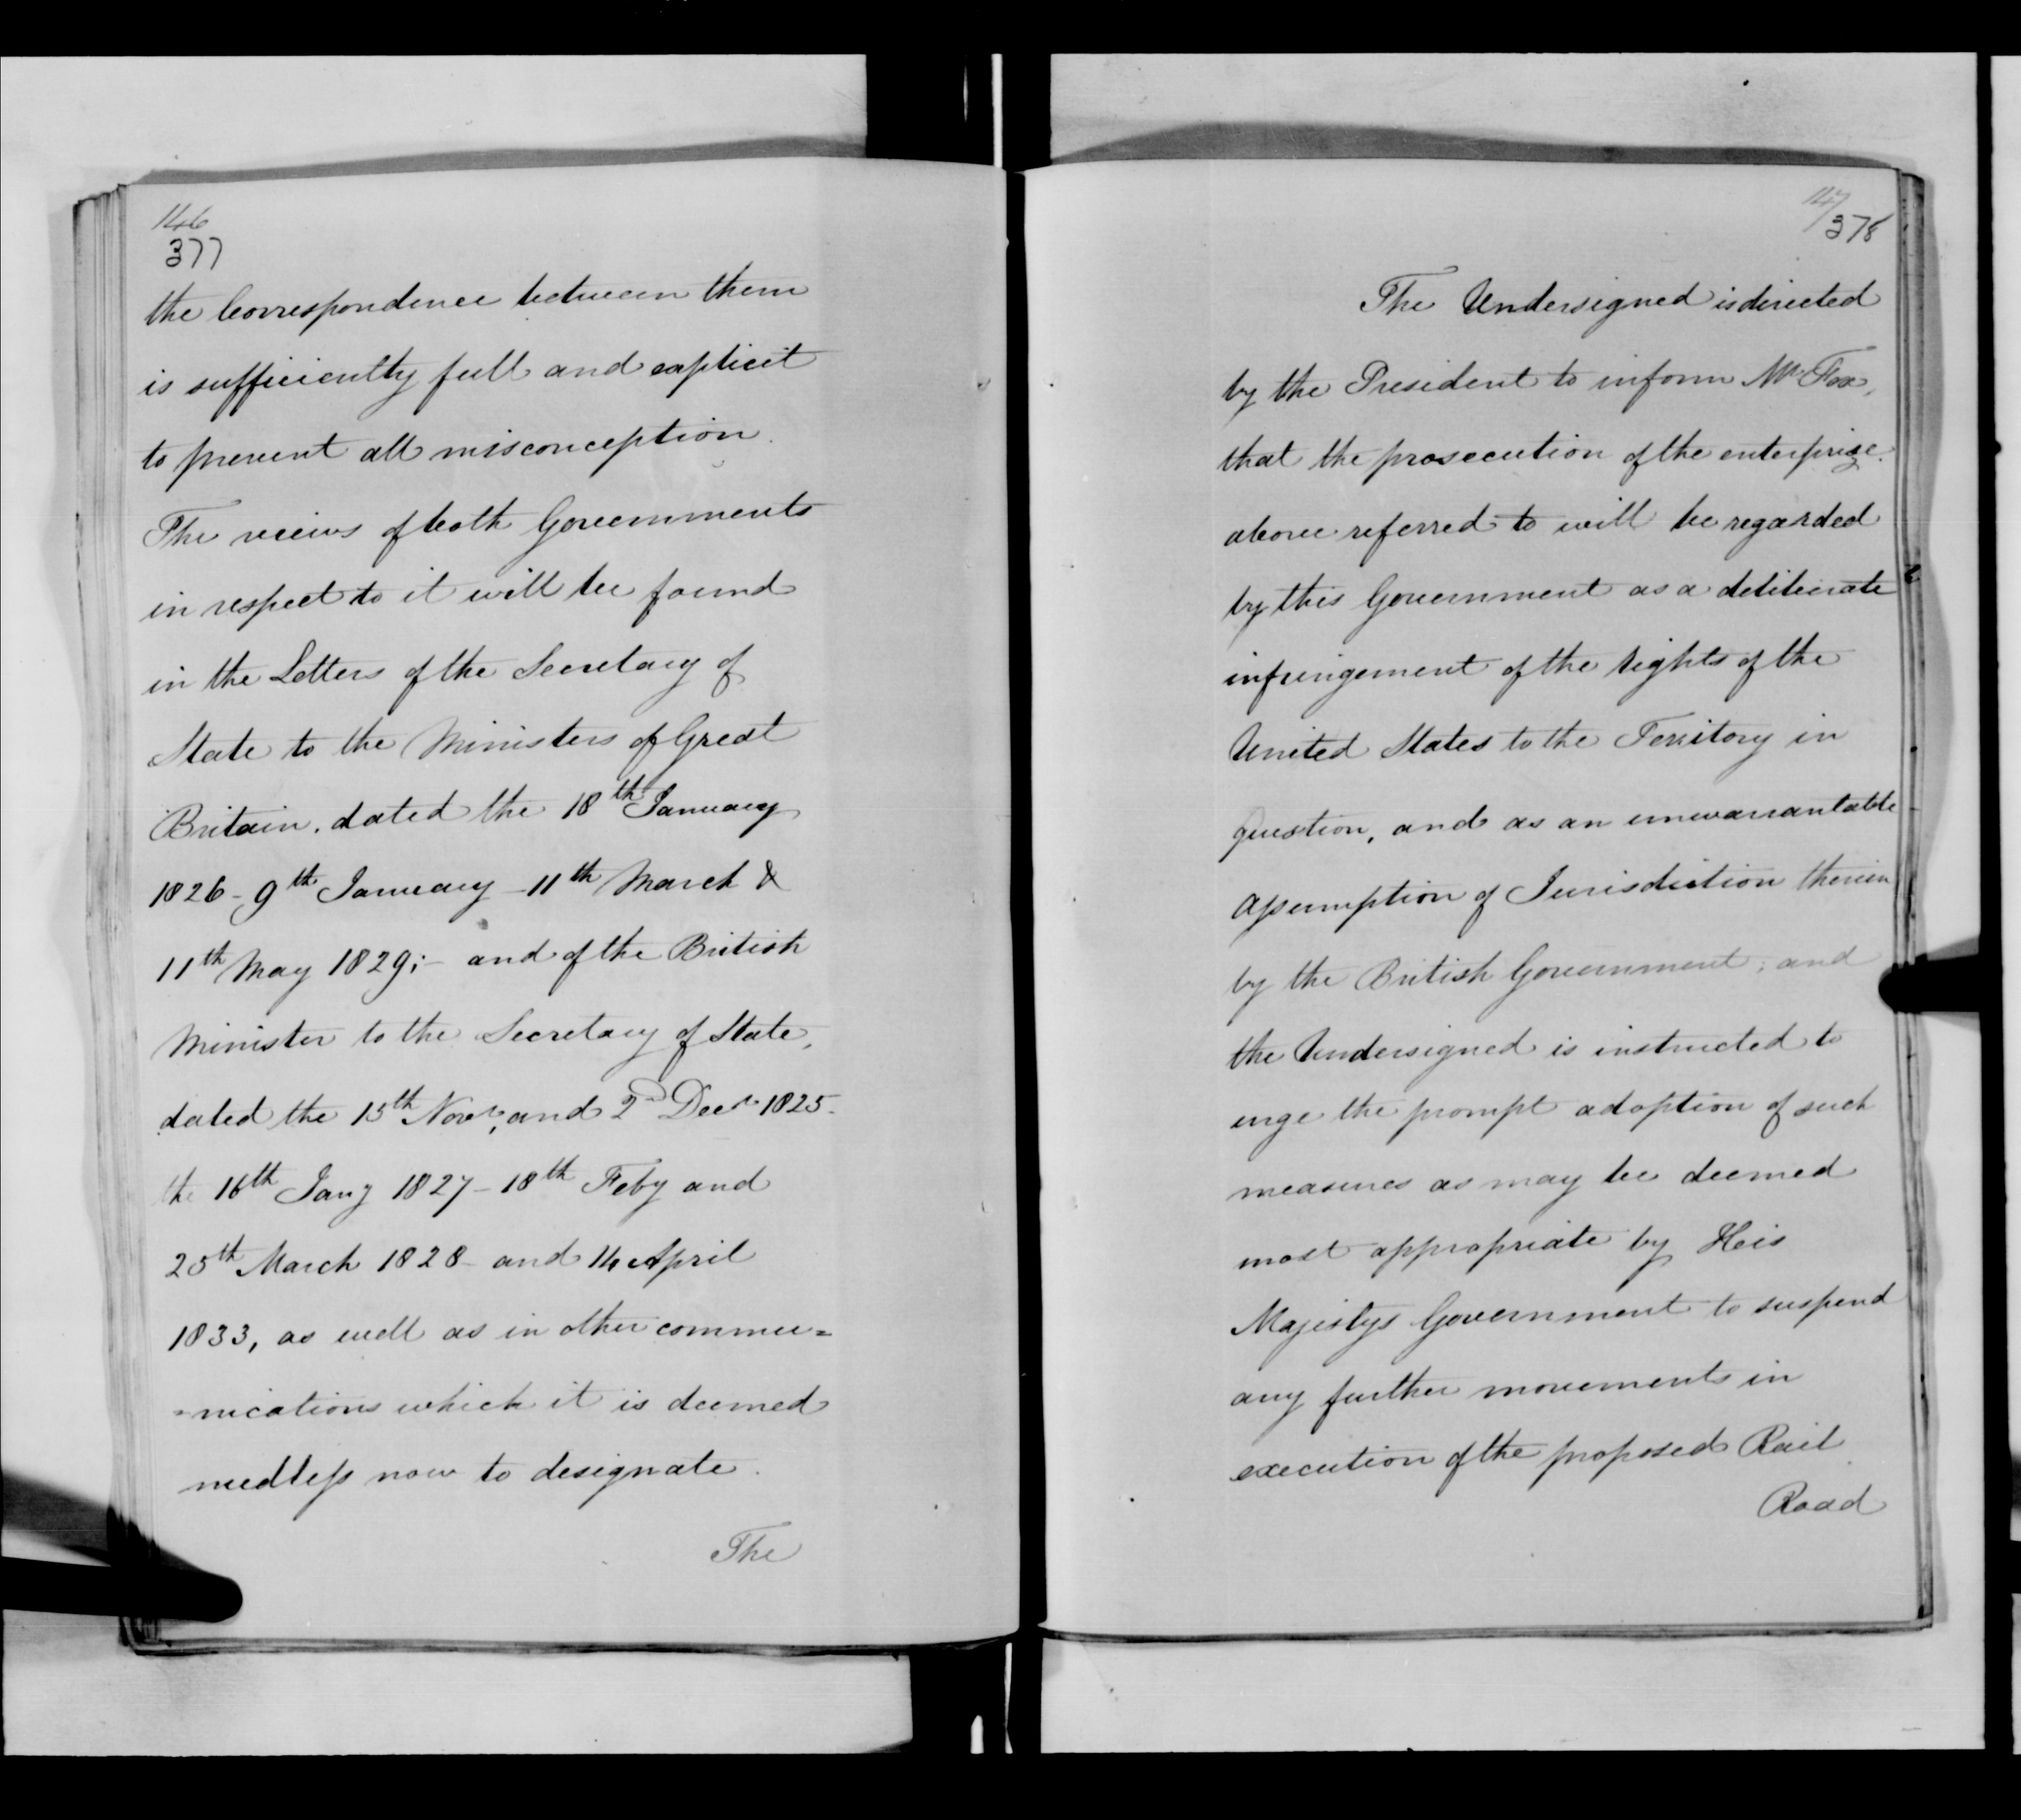 146
377
the Correspondence between them
is sufficiently full and explicit
to prevent all misconception.
The views of both Governments
in respect to it will be found
in the Letters of the Secretary of
State to the Ministers of Great
Britain, dated the 18th January
1826 - 9th January - 11th March &
11th May 1829; - and of the British
Minister to the Secretary of State,
dated the 15th Novr, and 2d Decr 1825.
the 16th Jany 1827 - 18th Feby and
25th March 1828 - and 14 April
1833, as well as in other commu=
=nications which it is deemed
needless now to designate.
The
147
378
The Undersigned is directed
by the President to inform Mr Fox,
that the prosecution of the enterprize
above referred to will be regarded
by this Government as a deliberate
infringement of the rights of the
United States to the Territory in
question, and as an unwarrantable
assumption of Jurisdiction therein
by the British Government; and
the Undersigned is instructed to
urge the prompt adoption of such
measures as may be deemed
most appropriate by His
Majestys Government to suspend
any further movements in
execution of the proposed Rail
Road